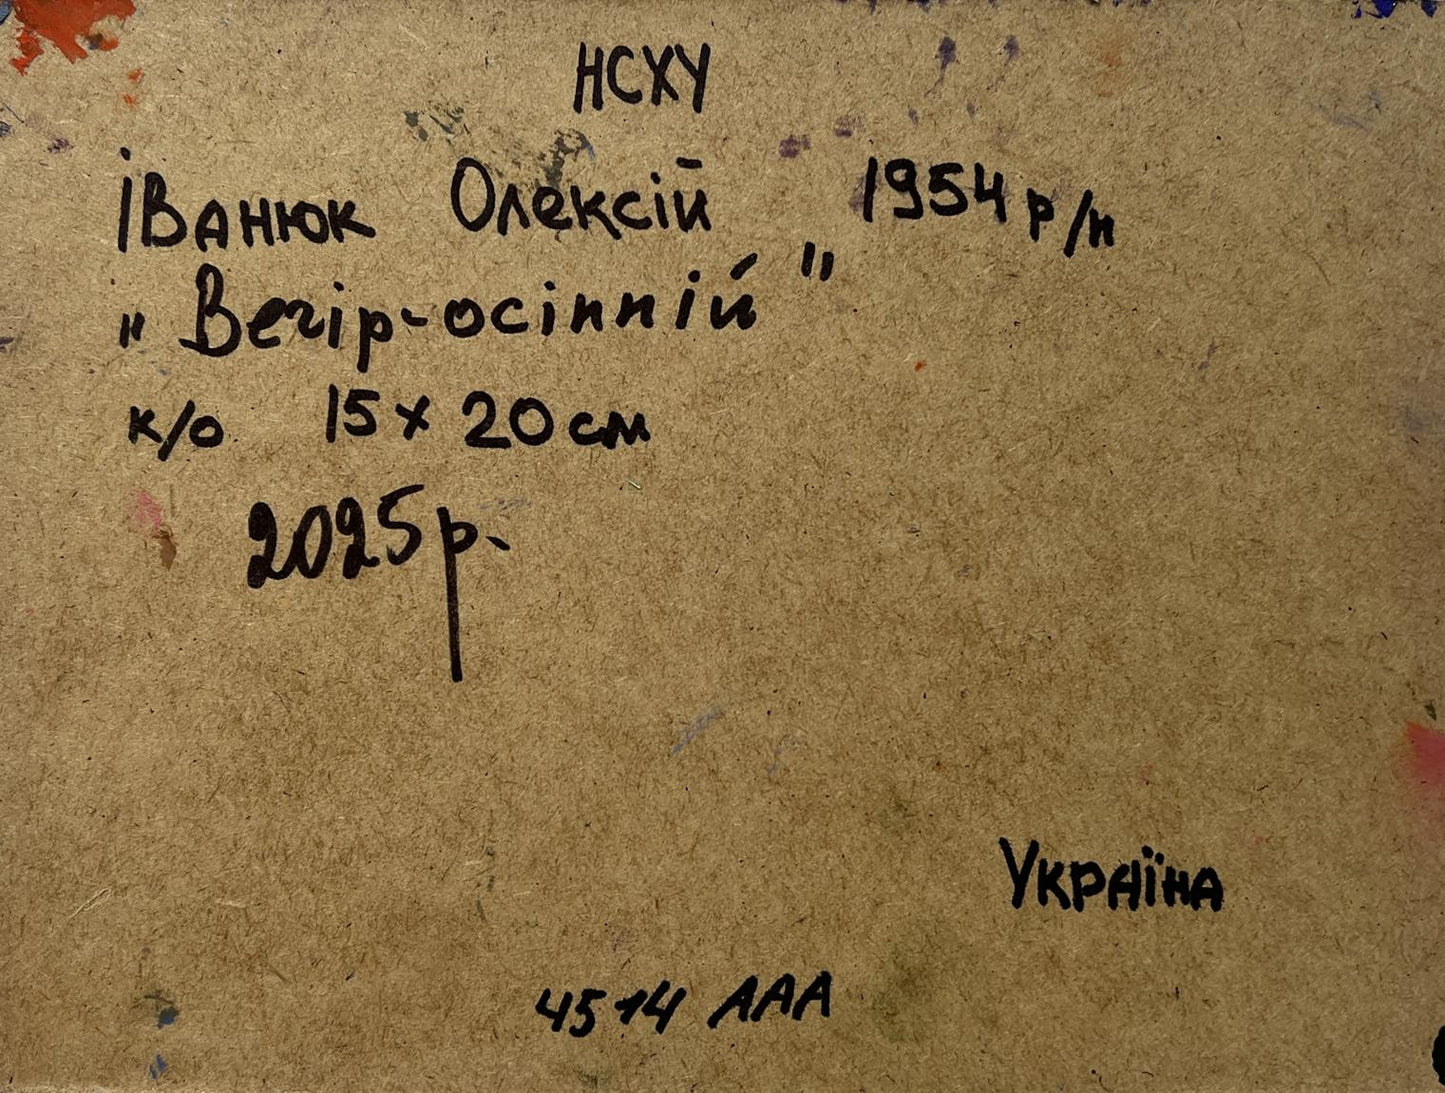 НСХУ
Іванюк Олексій 1954 р/н
„Вечір-осінній"
к/о 15 х 20 см
2025 р.
Україна
4514 ААА